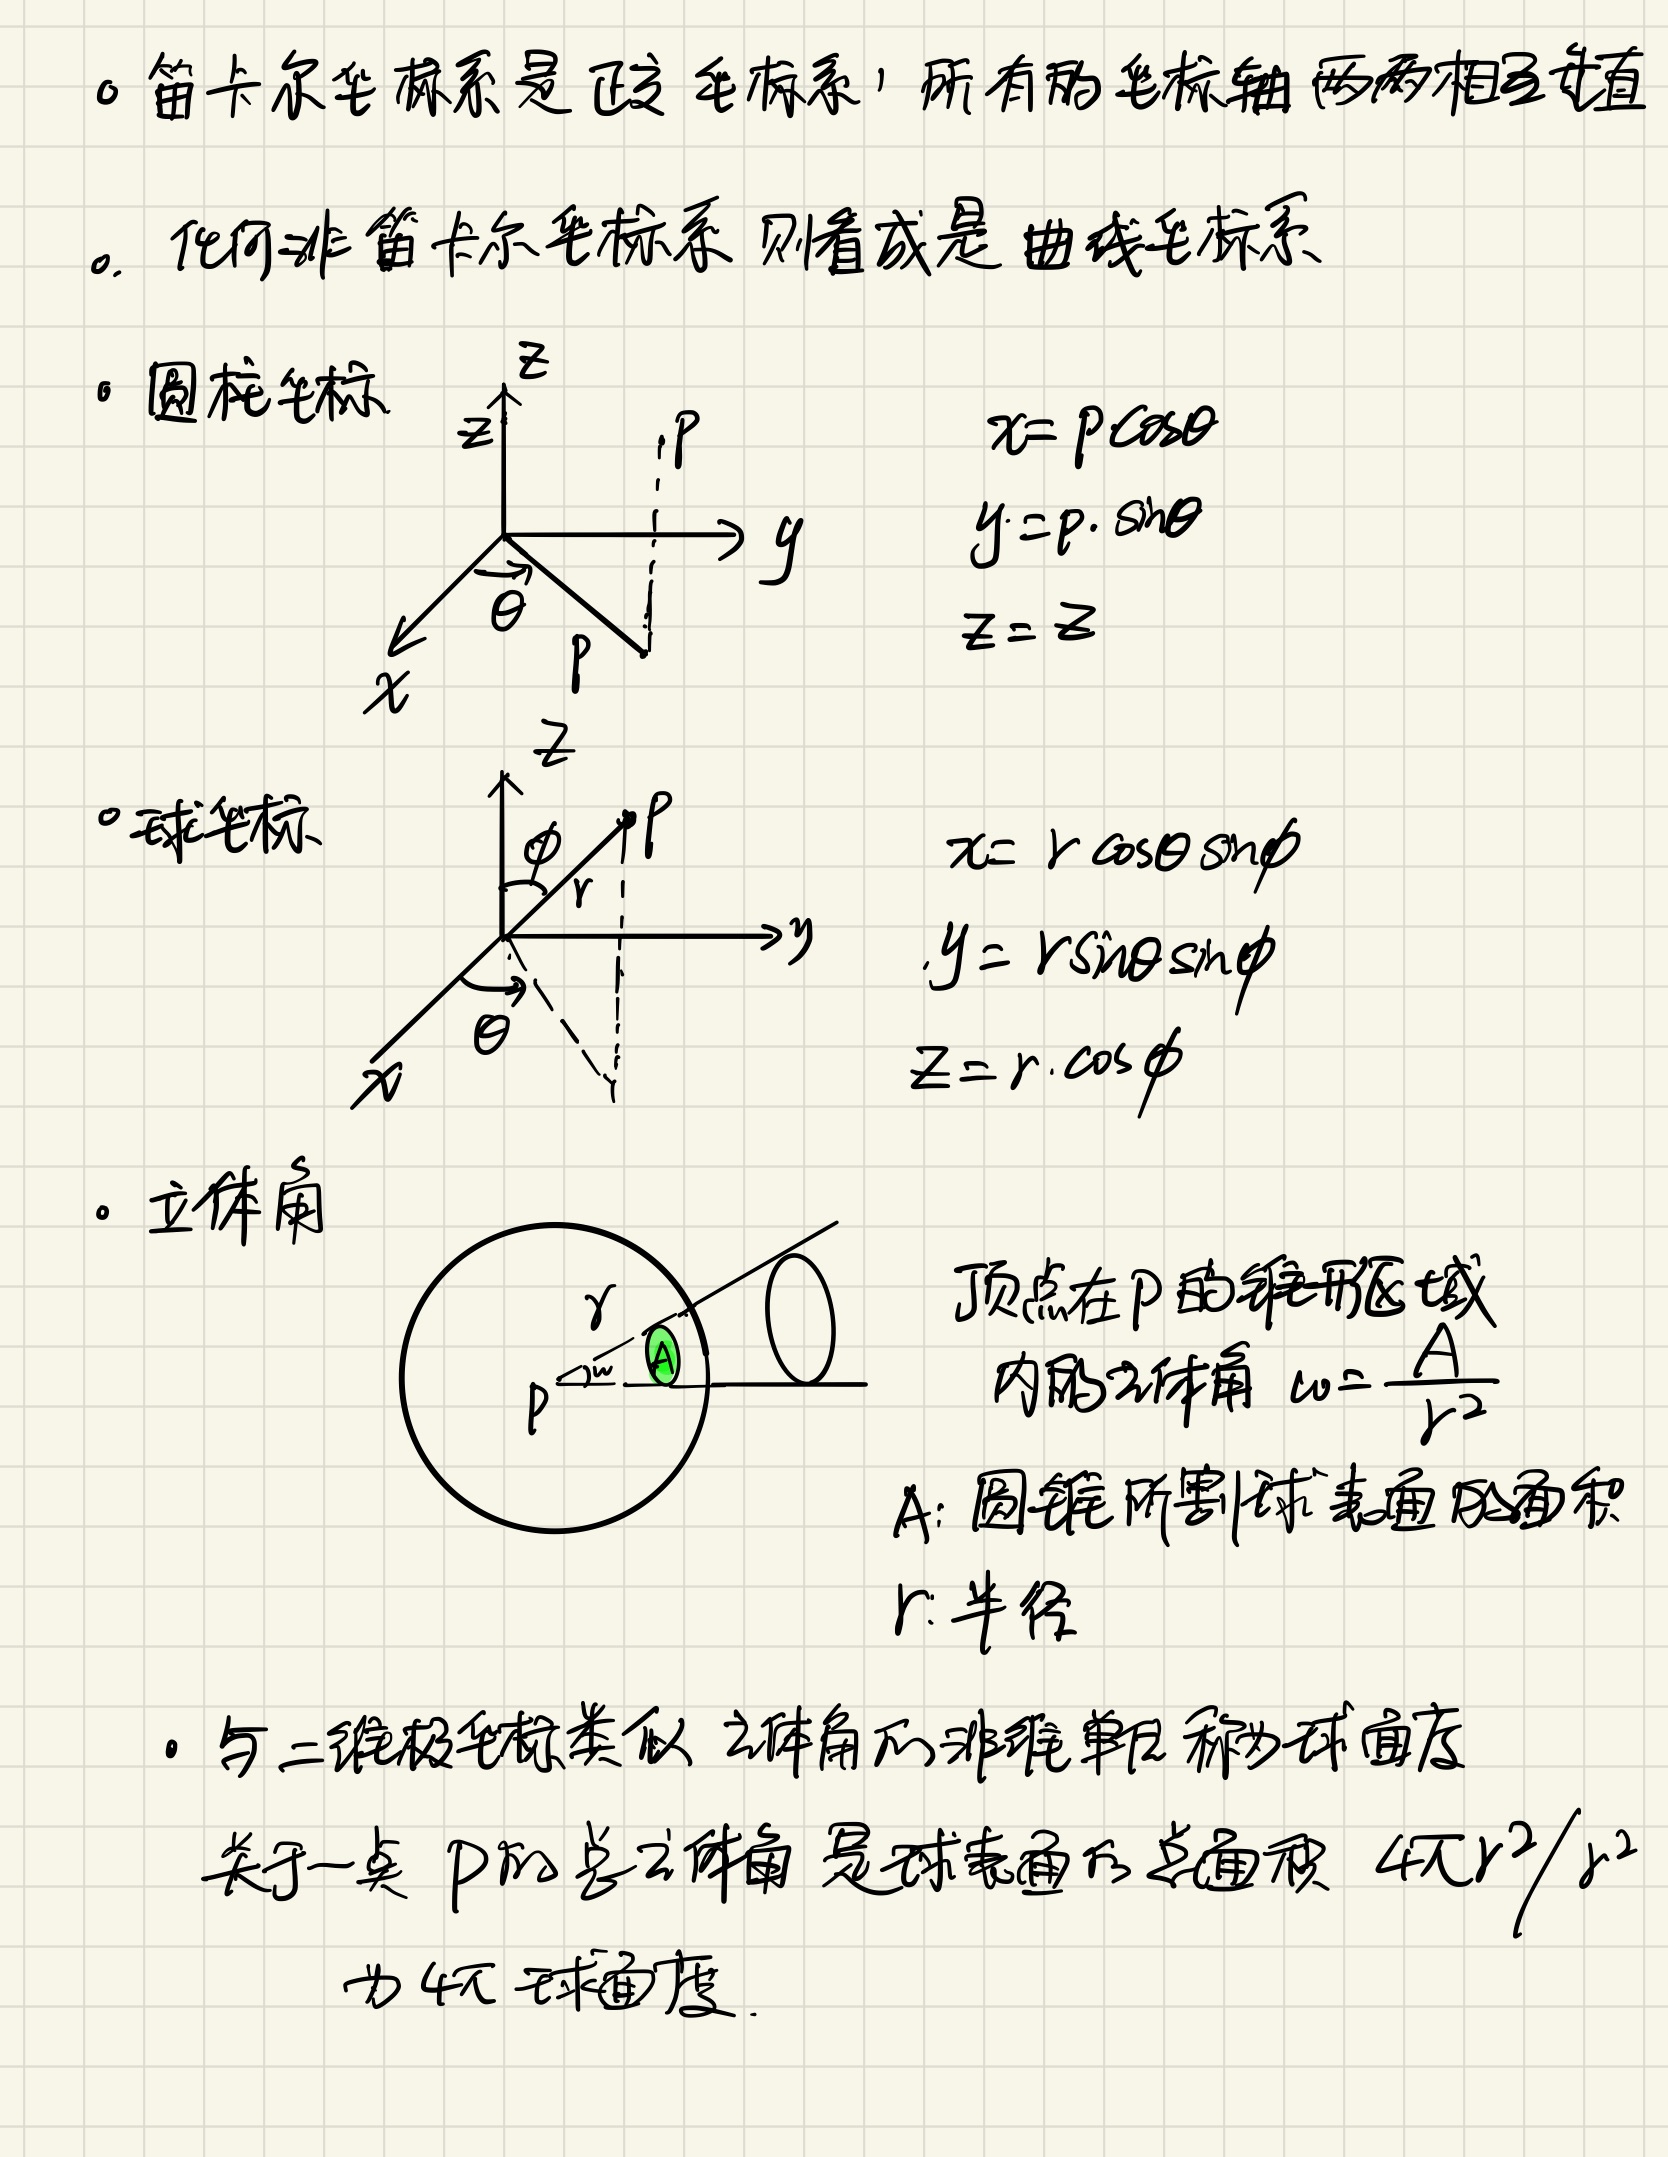 笛卡尔坐标系是正交坐标系，所有的坐标轴两两相互垂直
任何非笛卡尔坐标系则看成是曲线坐标系
圆柱坐标
z
z
P
y
θ
ρ
x
x=ρ·cosθ
y=ρ·sinθ
z=z
球坐标
z
P
φ
r
y
θ
x
x=r cosθ sinφ
y=r sinθ sinφ
z=r·cosφ
立体角
r
A
ω
P
顶点在P的锥形区域
内的立体角 ω=A/r²
A: 圆锥所割球表面的面积
r: 半径
与二维极坐标类似 立体角的非维单位称为球面度
关于一点P的总立体角是球表面的总面积 4πr²/r²
为4π球面度.